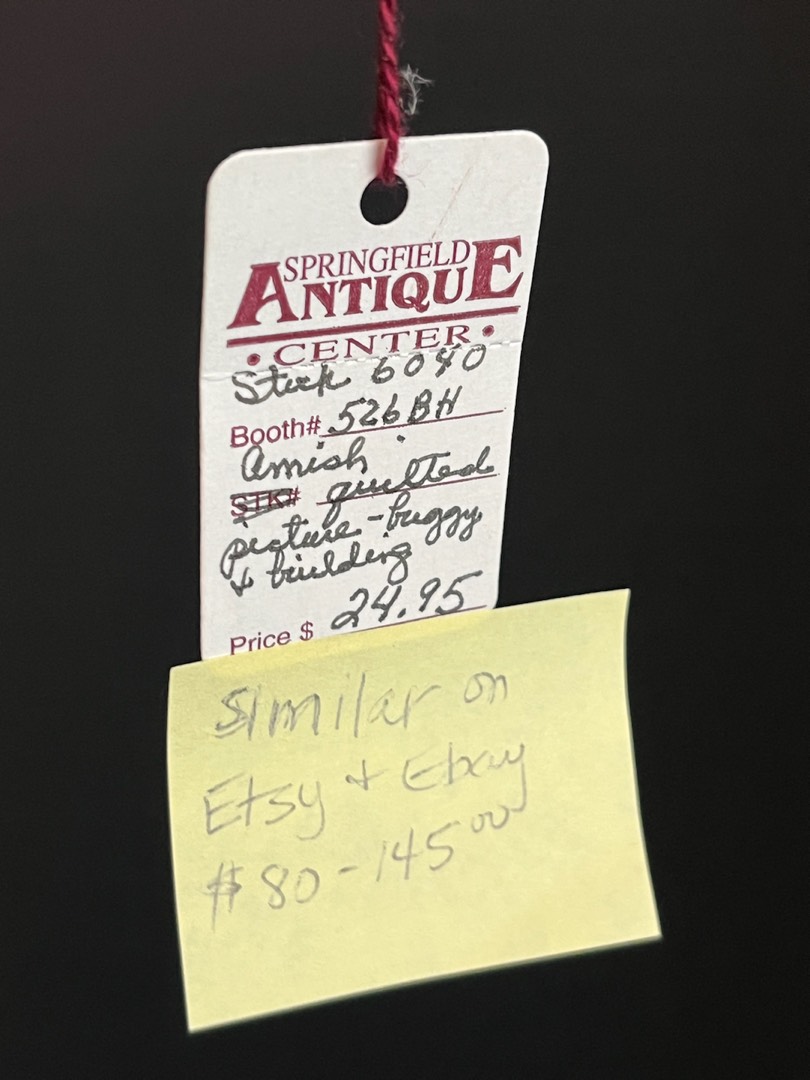 SPRINGFIELD
ANTIQUE
• CENTER •
Stock 6040
Booth# 526 BH
Amish
STK# quilted
picture - buggy
+ building
Price $ 24.95
Similar on
Etsy + Ebay
$80-145⁰⁰